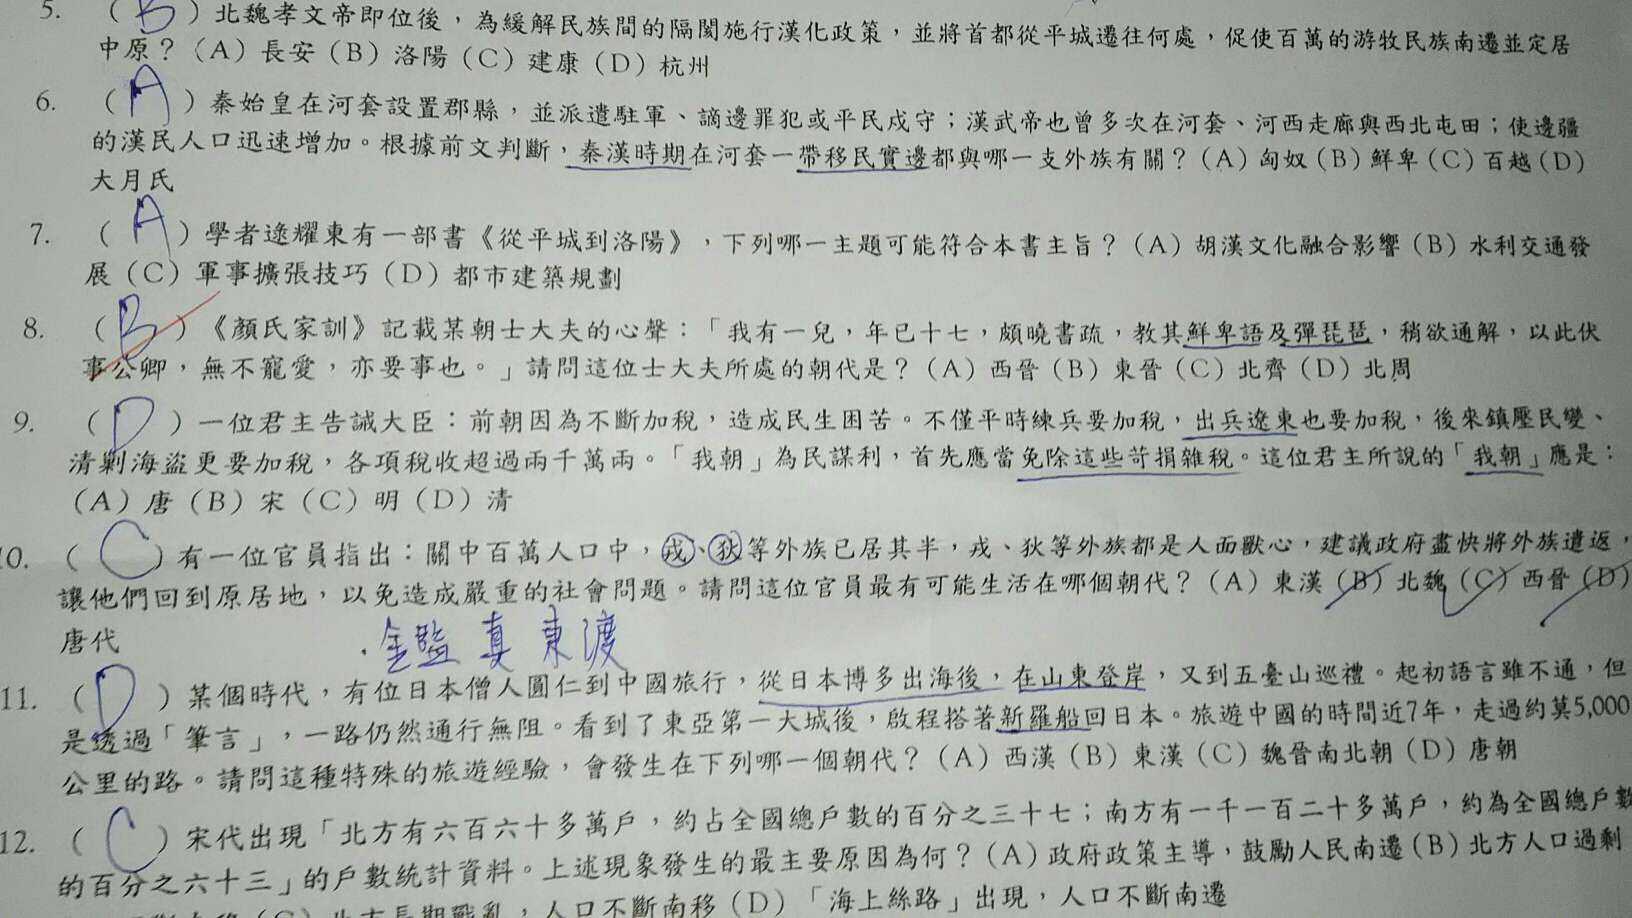 5. ( B ) 北魏孝文帝即位後，為緩解民族間的隔閡施行漢化政策，並將首都從平城遷往何處，促使百萬的游牧民族南遷並定居
中原？（A）長安（B）洛陽（C）建康（D）杭州
6. ( A ) 秦始皇在河套設置郡縣，並派遣駐軍、謫邊罪犯或平民戍守；漢武帝也曾多次在河套、河西走廊與西北屯田；使邊疆
的漢民人口迅速增加。根據前文判斷，秦漢時期在河套一帶移民實邊都與哪一支外族有關？（A）匈奴（B）鮮卑（C）百越（D）
大月氏
7. ( A ) 學者逯耀東有一部書《從平城到洛陽》，下列哪一主題可能符合本書主旨？（A）胡漢文化融合影響（B）水利交通發
展（C）軍事擴張技巧（D）都市建築規劃
8. ( B ) 《顏氏家訓》記載某朝士大夫的心聲：「我有一兒，年已十七，頗曉書疏，教其鮮卑語及彈琵琶，稍欲通解，以此伏
事公卿，無不寵愛，亦要事也。」請問這位士大夫所處的朝代是？（A）西晉（B）東晉（C）北齊（D）北周
9. ( D ) 一位君主告誡大臣：前朝因為不斷加稅，造成民生困苦。不僅平時練兵要加稅，出兵遼東也要加稅，後來鎮壓民變、
清剿海盜更要加稅，各項稅收超過兩千萬兩。「我朝」為民謀利，首先應當免除這些苛捐雜稅。這位君主所說的「我朝」應是：
（A）唐（B）宋（C）明（D）清
10. ( C ) 有一位官員指出：關中百萬人口中，戎、狄等外族已居其半，戎、狄等外族都是人面獸心，建議政府盡快將外族遣返，
讓他們回到原居地，以免造成嚴重的社會問題。請問這位官員最有可能生活在哪個朝代？（A）東漢（B）北魏（C）西晉（D）
唐代
鑑真東渡
11. ( D ) 某個時代，有位日本僧人圓仁到中國旅行，從日本博多出海後，在山東登岸，又到五臺山巡禮。起初語言雖不通，但
是透過「筆言」，一路仍然通行無阻。看到了東亞第一大城後，啟程搭著新羅船回日本。旅遊中國的時間近7年，走過約莫5,000
公里的路。請問這種特殊的旅遊經驗，會發生在下列哪一個朝代？（A）西漢（B）東漢（C）魏晉南北朝（D）唐朝
12. ( C ) 宋代出現「北方有六百六十多萬戶，約占全國總戶數的百分之三十七；南方有一千一百二十多萬戶，約為全國總戶數
的百分之六十三」的戶數統計資料。上述現象發生的最主要原因為何？（A）政府政策主導，鼓勵人民南遷（B）北方人口過剩
（C）北方長期戰亂，人口不斷南移（D）「海上絲路」出現，人口不斷南遷